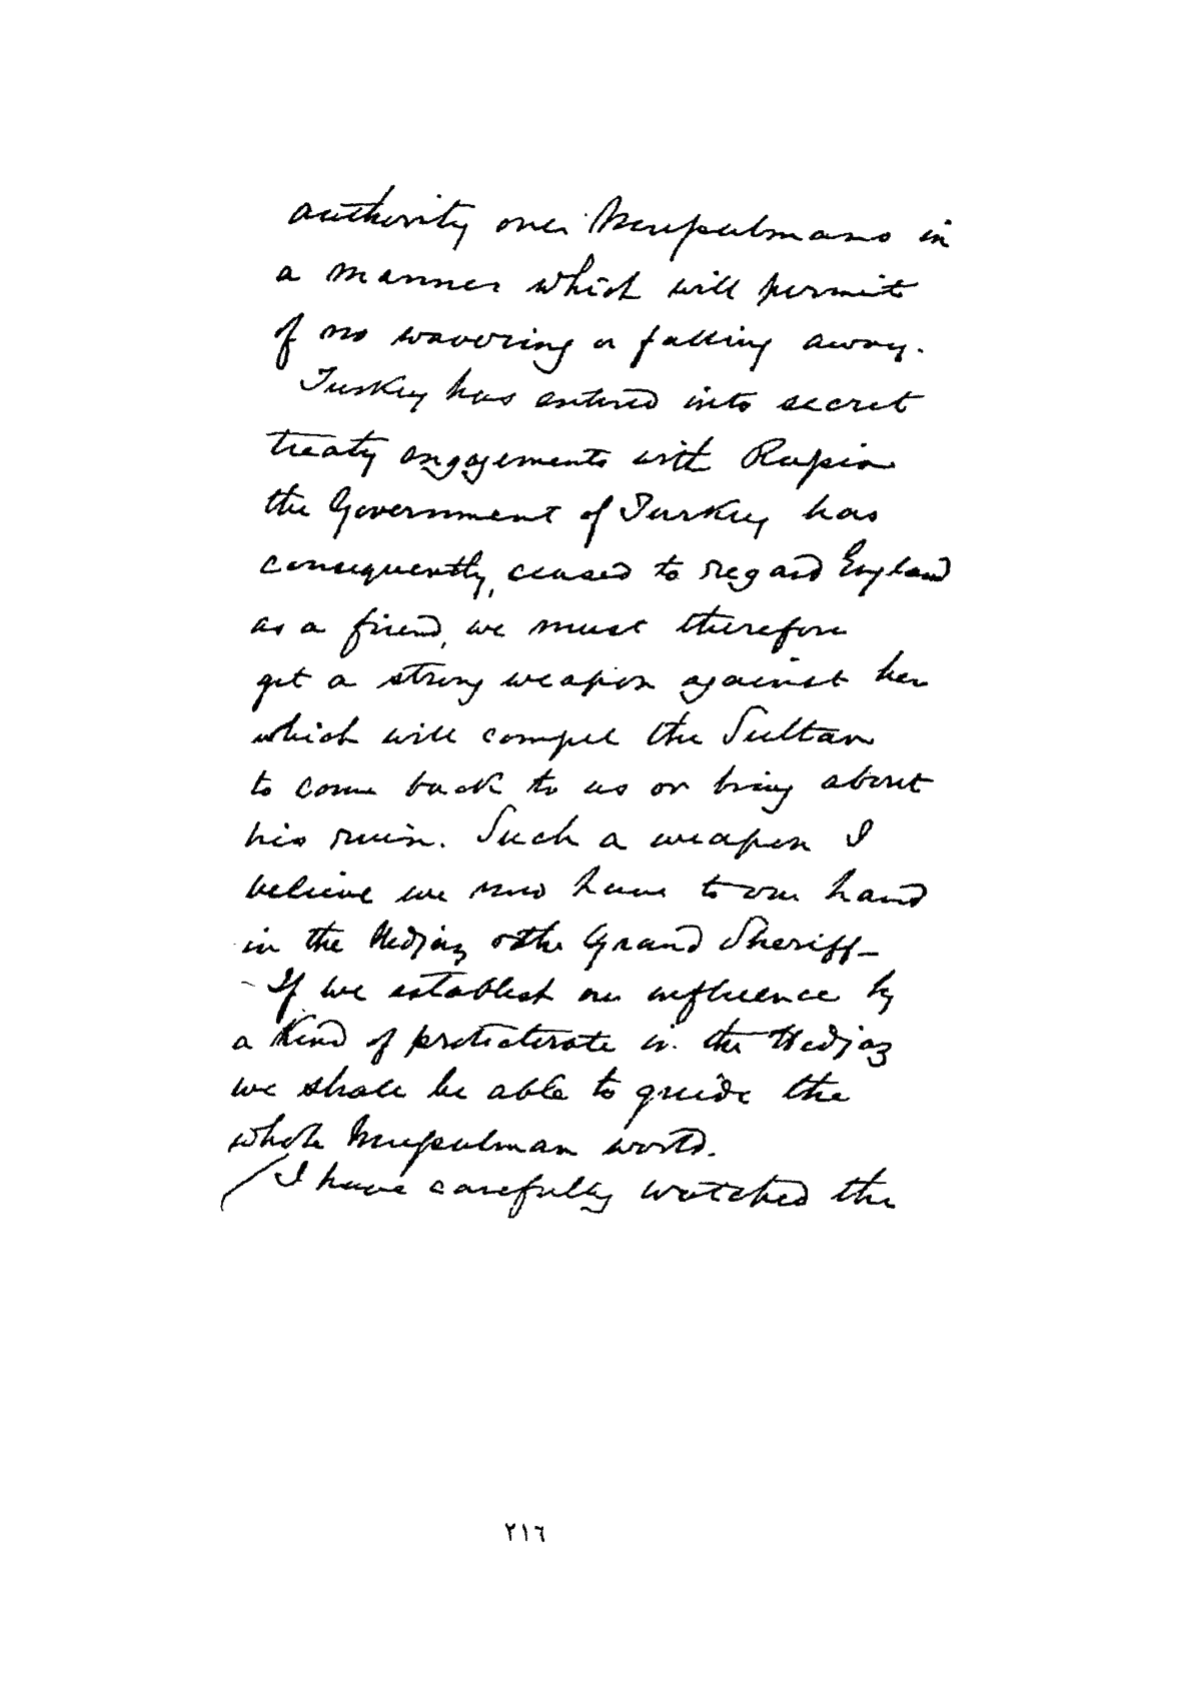 authority over Mussulmans in
a manner which will permit
of no wavering or falling away.
Turkey has entered into secret
treaty engagements with Russia
the Government of Turkey has
consequently, ceased to regard England
as a friend, we must therefore
get a strong weapon against her
which will compel the Sultan
to come back to us or bring about
his ruin. Such a weapon I
believe we now have to our hand
in the Hedjaz & the Grand Sheriff –
– If we establish our influence by
a kind of protectorate in the Hedjaz
we shall be able to guide the
whole Mussulman world.
I have carefully watched the
٢١٦